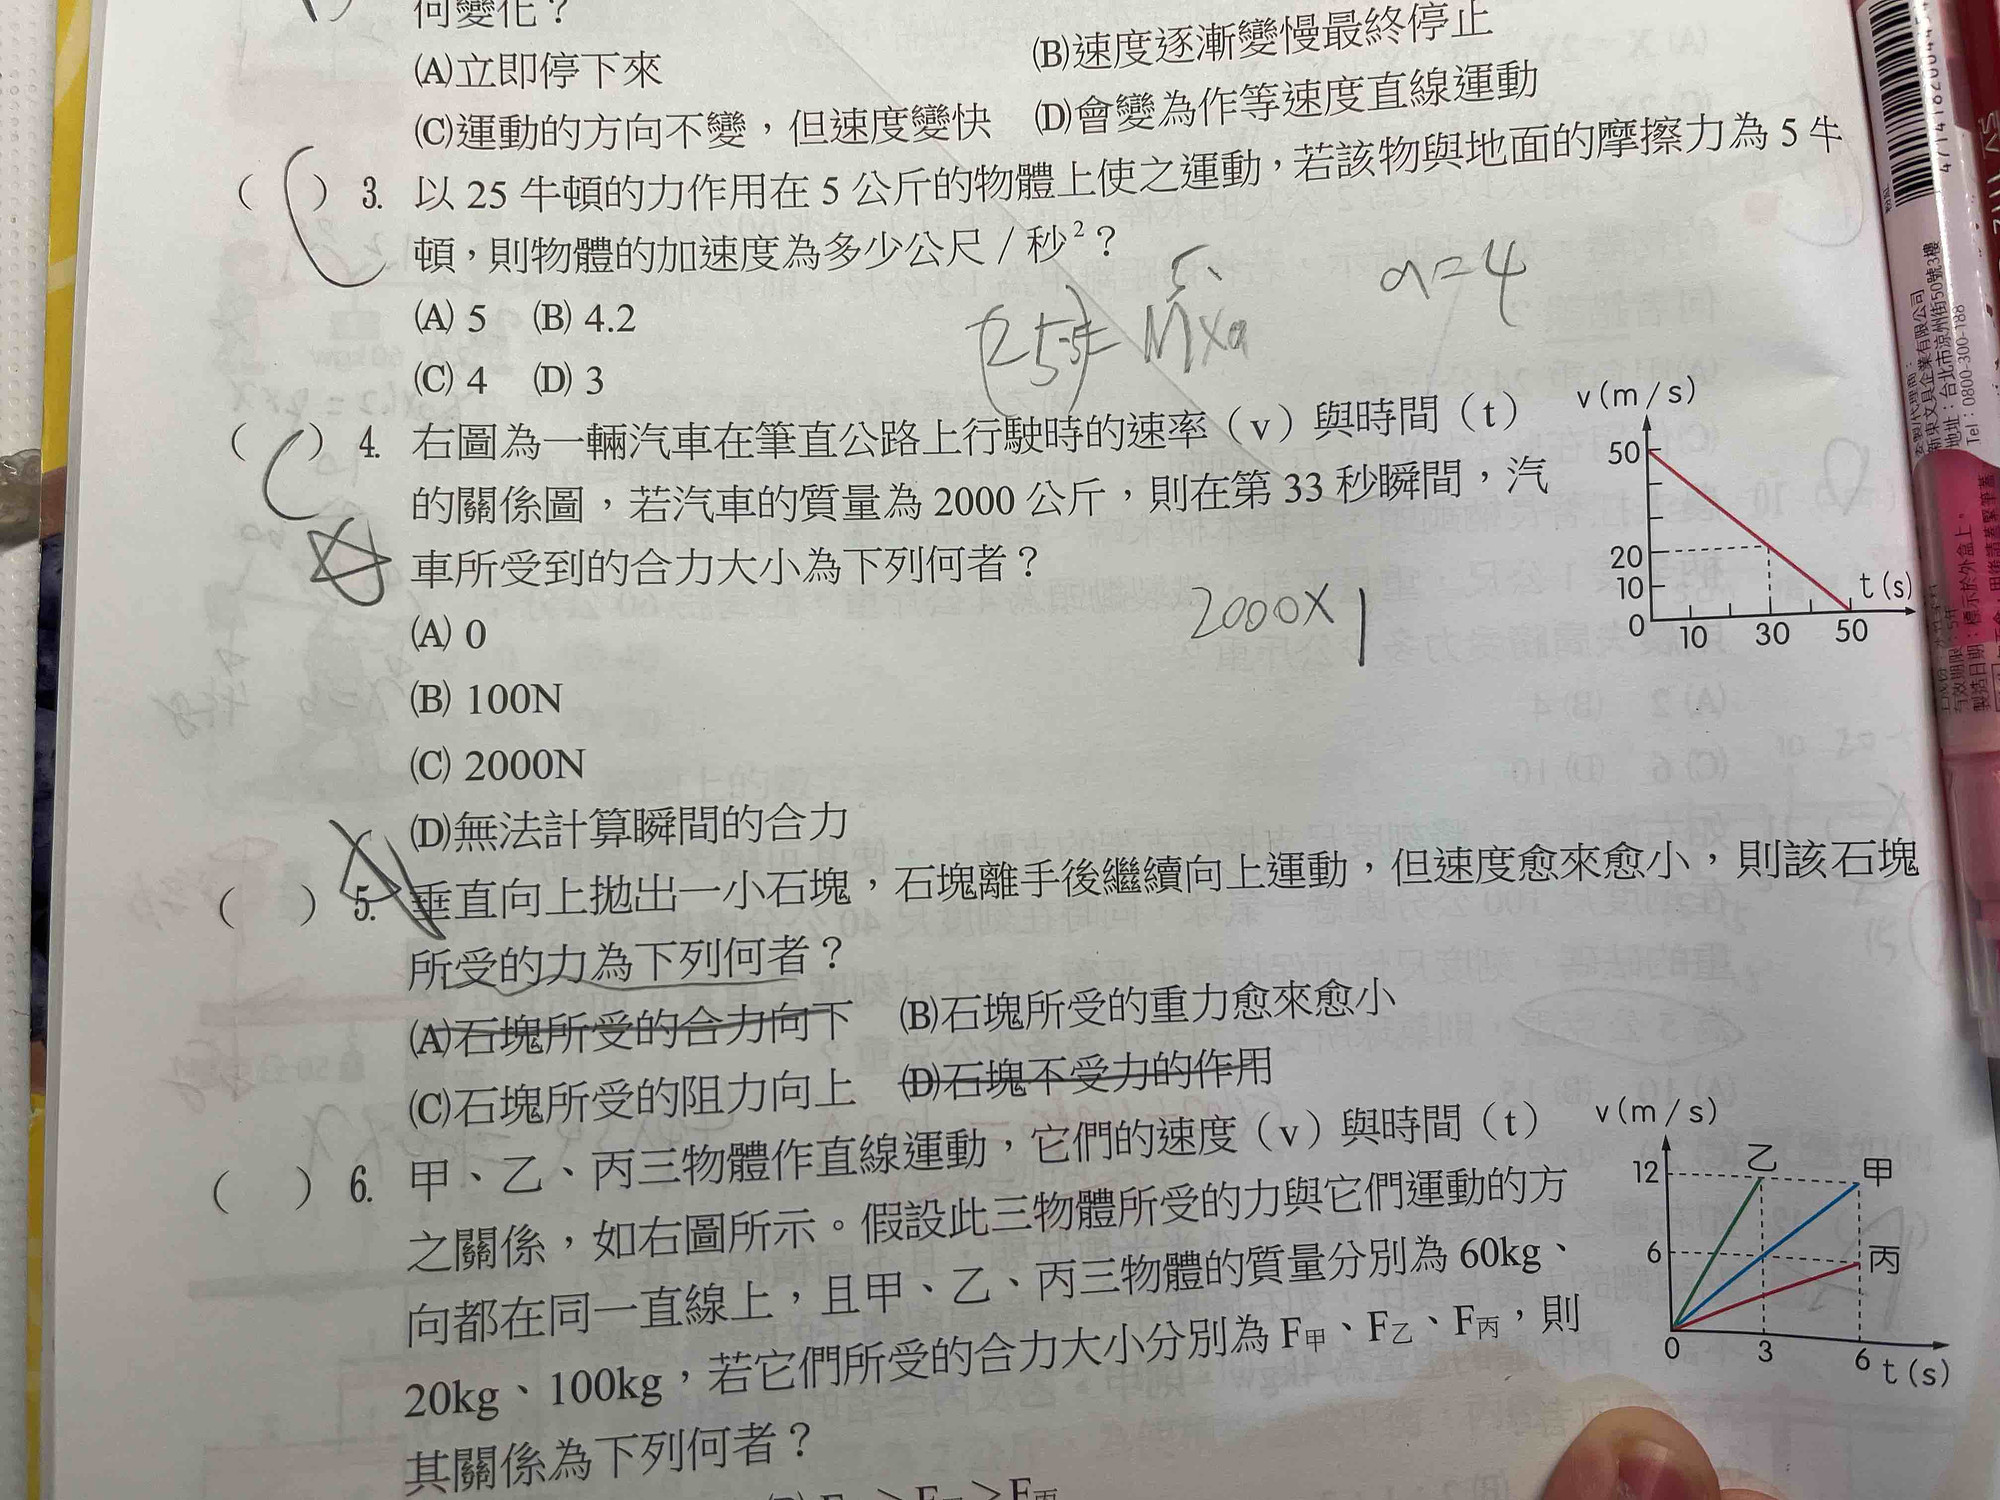 何變化？
(A)立即停下來 (B)速度逐漸變慢最終停止
(C)運動的方向不變，但速度變快 (D)會變為作等速度直線運動
( ) 3. 以 25 牛頓的力作用在 5 公斤的物體上使之運動，若該物與地面的摩擦力為 5 牛
頓，則物體的加速度為多少公尺／秒²？
a=4
(A) 5 (B) 4.2
(C) 4 (D) 3
( ) 4. 右圖為一輛汽車在筆直公路上行駛時的速率（v）與時間（t）
的關係圖，若汽車的質量為 2000 公斤，則在第 33 秒瞬間，汽
車所受到的合力大小為下列何者？
2000×1
(A) 0
(B) 100N
(C) 2000N
(D)無法計算瞬間的合力
v(m/s)
50
20
10
0
10 30 50
t(s)
( ) 5. 垂直向上拋出一小石塊，石塊離手後繼續向上運動，但速度愈來愈小，則該石塊
所受的力為下列何者？
(A)石塊所受的合力向下 (B)石塊所受的重力愈來愈小
(C)石塊所受的阻力向上 (D)石塊不受力的作用
( ) 6. 甲、乙、丙三物體作直線運動，它們的速度（v）與時間（t）
之關係，如右圖所示。假設此三物體所受的力與它們運動的方
向都在同一直線上，且甲、乙、丙三物體的質量分別為 60kg、
20kg、100kg，若它們所受的合力大小分別為 F甲、F乙、F丙，則
其關係為下列何者？
v(m/s)
12
6
0
3
6
t(s)
乙
甲
丙
地址：台北市涼州街50號3樓
Tel：0800-300-188